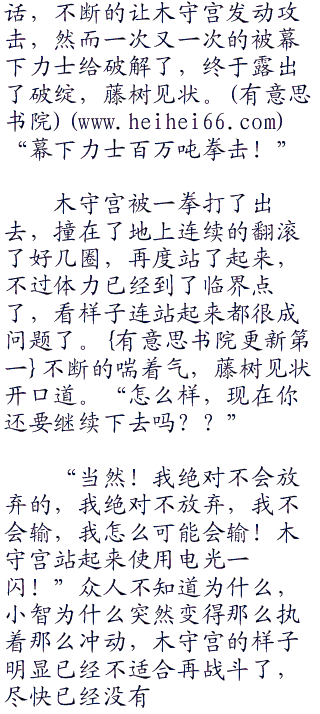 话，不断的让木守宫发动攻
击，然而一次又一次的被幕
下力士给破解了，终于露出
了破绽，藤树见状。(有意思
书院)(www.heihei66.com)
“幕下力士百万吨拳击！”
木守宫被一拳打了出
去，撞在了地上连续的翻滚
了好几圈，再度站了起来，
不过体力已经到了临界点
了，看样子连站起来都很成
问题了。{有意思书院更新第
一}不断的喘着气，藤树见状
开口道。“怎么样，现在你
还要继续下去吗？？”
“当然！我绝对不会放
弃的，我绝对不放弃，我不
会输，我怎么可能会输！木
守宫站起来使用电光一
闪！”众人不知道为什么，
小智为什么突然变得那么执
着那么冲动，木守宫的样子
明显已经不适合再战斗了，
尽快已经没有